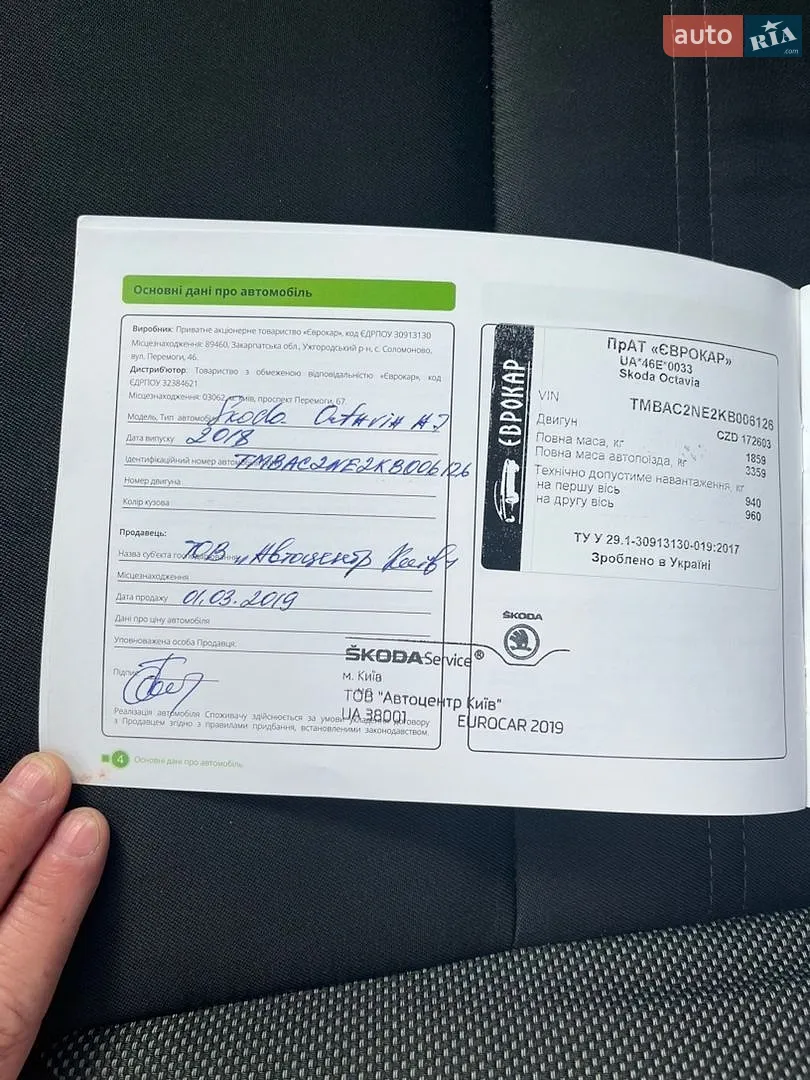 auto RIA.com
Основні дані про автомобіль
Виробник: Приватне акціонерне товариство «Єврокар», код ЄДРПОУ 30913130
Місцезнаходження: 89460, Закарпатська обл., Ужгородський р-н, с. Соломоново,
вул. Перемоги, 46.
Дистриб'ютор: Товариство з обмеженою відповідальністю «Єврокар», код
ЄДРПОУ 32384621
Місцезнаходження: 03062, м. Київ, проспект Перемоги, 67.
Модель, Тип автомобіля Skoda Octavia A7
Дата випуску 2018
Ідентифікаційний номер автомобіля TMBAC2NE2KB006126
Номер двигуна
Колір кузова
Продавець:
Назва суб'єкта господарювання ТОВ „Автоцентр Київ"
Місцезнаходження
Дата продажу 01.03.2019
Дані про ціну автомобіля
Уповноважена особа Продавця:
Підпис
Реалізація автомобіля Споживачу здійснюється за умови укладення договору
з Продавцем згідно з правилами придбання, встановленими законодавством.
4 Основні дані про автомобіль
ŠKODA Service®
м. Київ
ТОВ "Автоцентр Київ"
UA 38001 EUROCAR 2019
ЄВРОКАР
ПрАТ «ЄВРОКАР»
UA*46E*0033
Skoda Octavia
VIN TMBAC2NE2KB006126
Двигун CZD 172603
Повна маса, кг 1859
Повна маса автопоїзда, кг 3359
Технічно допустиме навантаження, кг
на першу вісь 940
на другу вісь 960
ТУ У 29.1-30913130-019:2017
Зроблено в Україні
ŠKODA